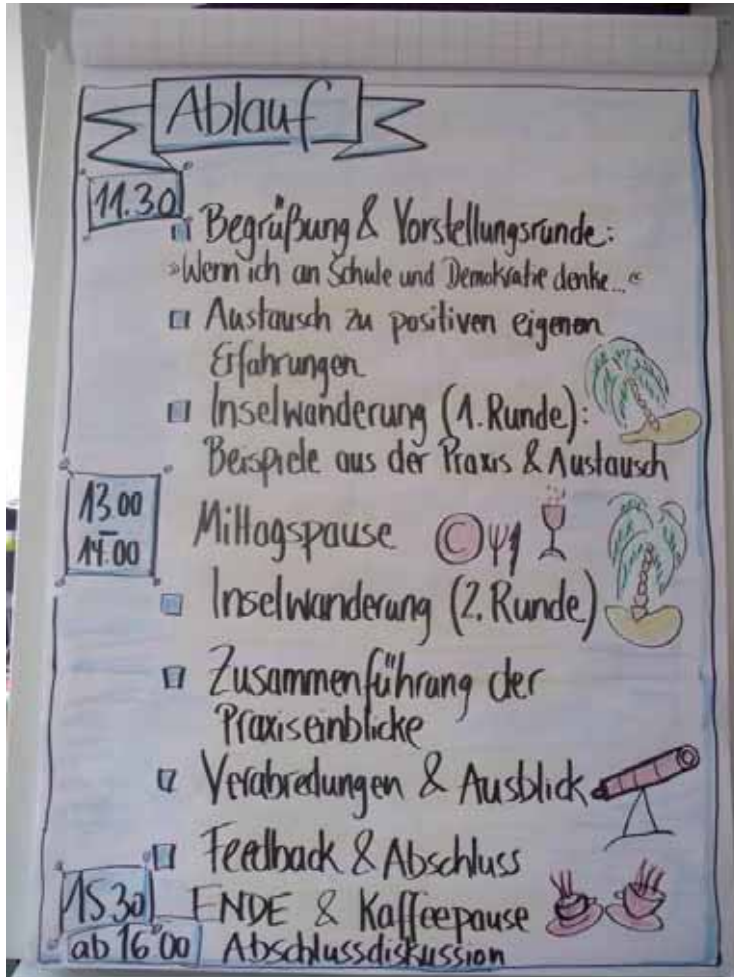 Ablauf
11.30
Begrüßung & Vorstellungsrunde:
»Wenn ich an Schule und Demokratie denke..."
Austausch zu positiven eigenen
Erfahrungen
Inselwanderung (1. Runde):
Beispiele aus der Praxis & Austausch
13 00
–
14.00
Mittagspause
Inselwanderung (2. Runde)
Zusammenführung der
Praxiseinblicke
Verabredungen & Ausblick
Feedback & Abschluss
15 30 ENDE & Kaffeepause
ab 16 00 Abschlussdiskussion